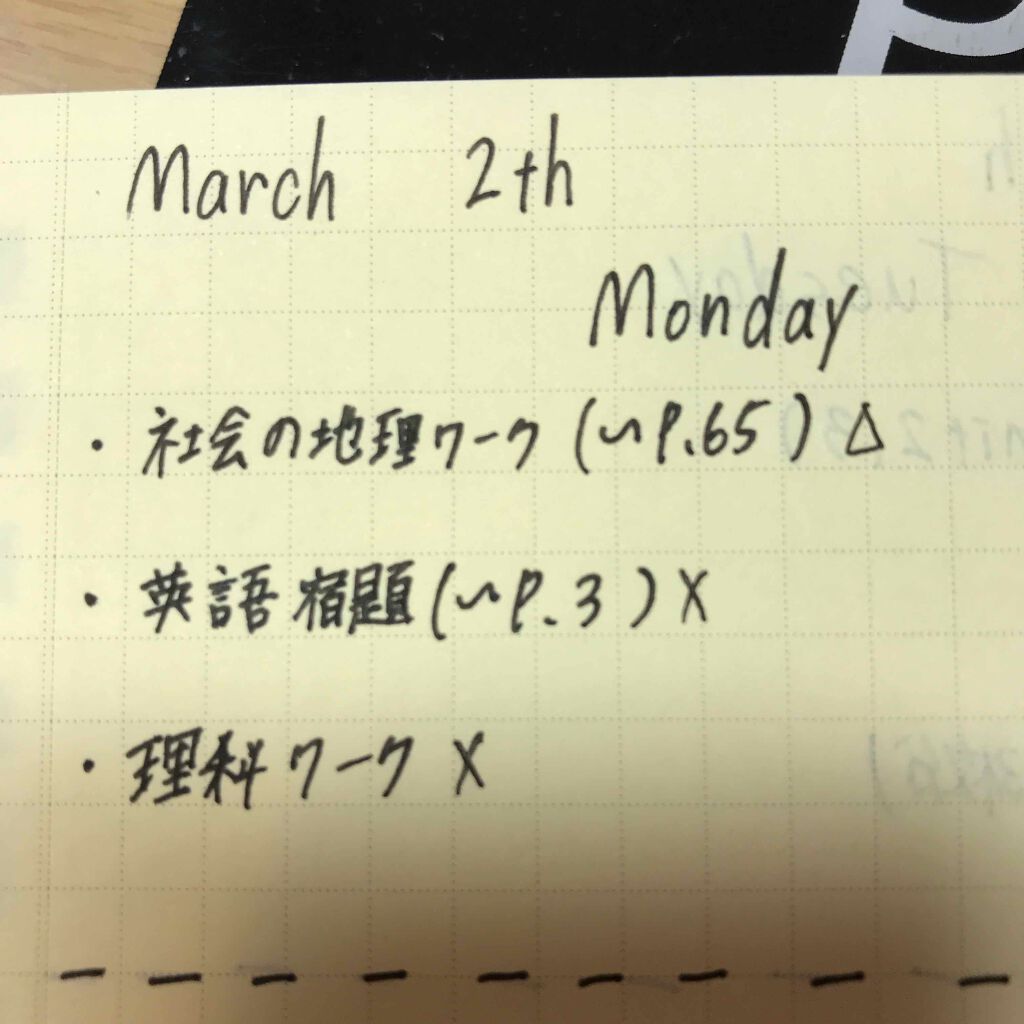 March 2th
Monday
・社会の地理ワーク (~P.65) △
・英語宿題 (~P.3) X
・理科ワーク X